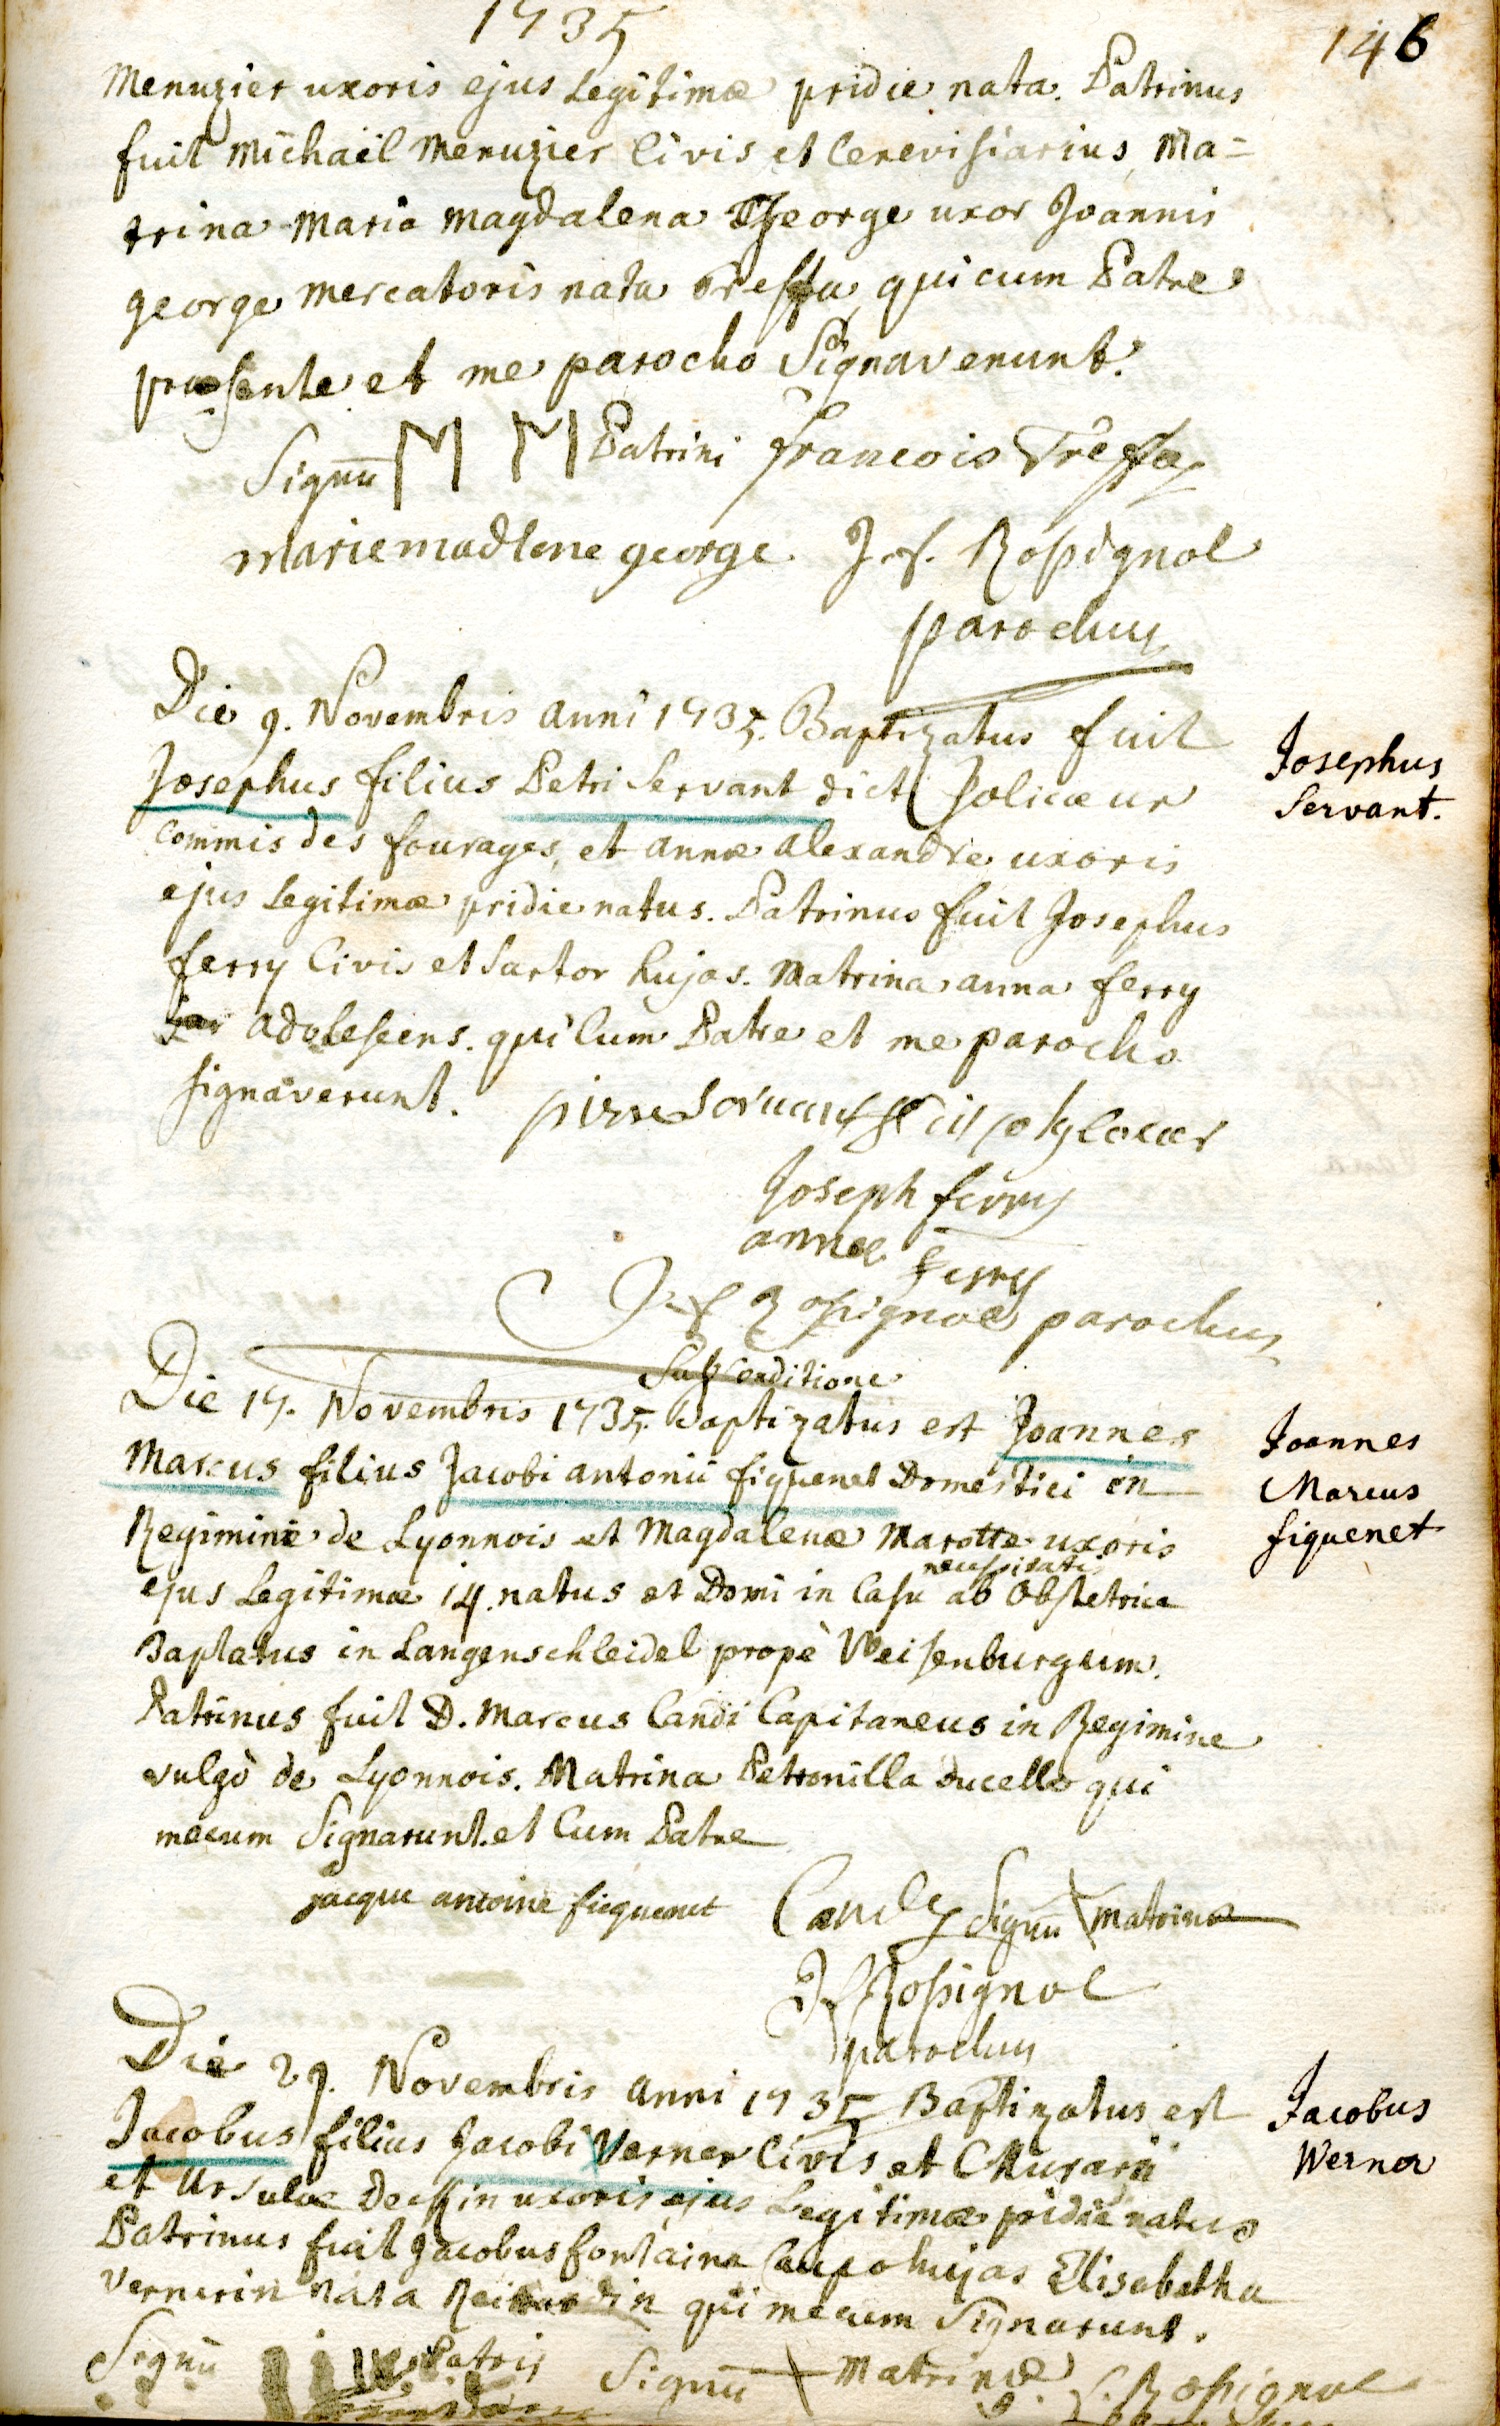 1735
146
Menuzier uxoris ejus Legitimæ pridie nata. Patrinus
fuit Michaël Menuzier Civis et Cerevisiarius, Ma=
trina Maria Magdalena George uxor Joannis
george mercatoris nata Treffa, qui cum Patre
præsente et me parocho Signaverunt.
Signū M M Patrini francois Treffa
marie madlene george. J. f. Rossignol
parochus
Die 9. Novembris anni 1735. Baptizatus fuit
Josephus filius Petri Servant dicti Jolicæur
commis des fourages, et annæ alexandre uxoris
ejus Legitimæ pridie natus. Patrinus fuit Josephus
ferry Civis et Sartor hujas. Matrina anna ferry
adolescens. qui Cum Patre et me parocho
signaverunt. pirre Servant
Joseph ferry
anne ferry
J. f. Rossignol parochus
Josephus
Servant.
Sub Conditione
Die 17. Novembris 1735. baptizatus est Joannes
Marcus filius Jacobi antonii figuenet Domestici in
Regimine de Lyonnois et Magdalenæ Marotte uxoris
necessitatis
ejus Legitimæ 14. natus et Domi in Casu ab Obstetrice
Baptatus in Langenschleidel propè Weisenburgum.
Patrinus fuit D. Marcus Candi Capitaneus in Regimine
vulgò de Lyonnois. Matrina Petronilla ducello qui
mecum Signarunt et Cum Patre
jacque antoine ficquenet Candy Signū \ matrinæ
J f Rossignol
parochus
Joannes
Marcus
figuenet
Die 29. Novembris anni 1735 Baptizatus est
Jacobus filius Jacobi Verner Civis et Murarii
et Ursulæ uxoris ejus Legitimæ pridie natus
Patrinus fuit Jacobus fontaine Caupo hujas Elisabetha
Vernerin nata qui mecum Signarunt.
Signū Patris Signū + Matrinæ J. f. Rossignol
Jacobus
Werner